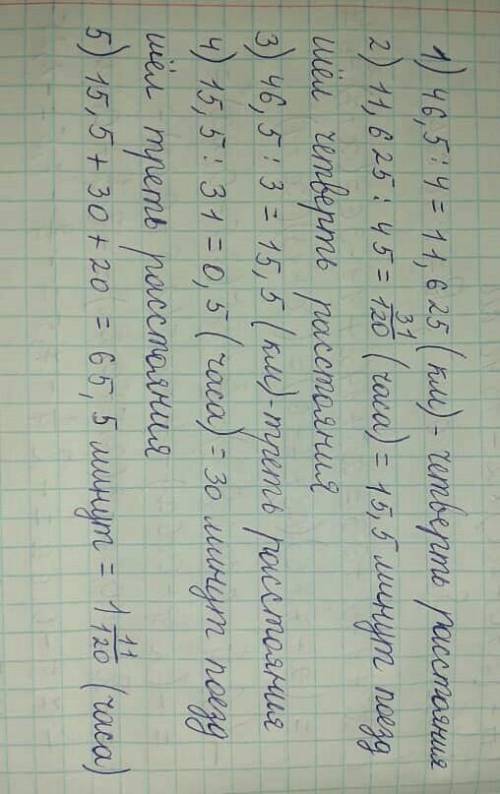 1) 46,5 : 4 = 11,625 (км) - четверть расстояния
2) 11,625 : 45 = 31/120 (часа) = 15,5 минут поезд
шёл четверть расстояния
3) 46,5 : 3 = 15,5 (км) - треть расстояния
4) 15,5 : 31 = 0,5 (часа) = 30 минут поезд
шёл треть расстояния
5) 15,5 + 30 + 20 = 65,5 минут = 1 11/120 (часа)